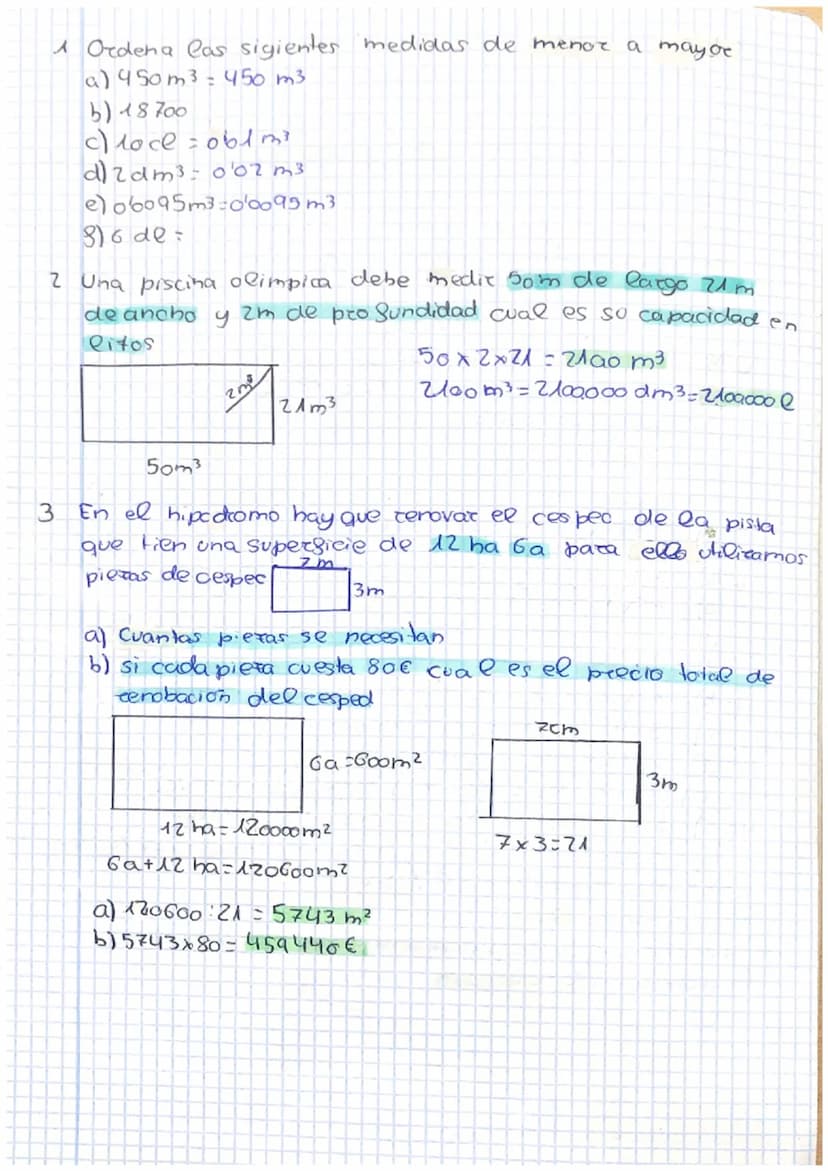 1 Ordena las sigientes medidas de menor a mayor
a) 450 m³ = 450 m³
b) 18700
c) 10 cl = 0b1 m³
d) 2 dm³ = 0'02 m³
e) 0'6095 m³ = 0'0095 m³
g) 6 dl =
2 Una piscina olimpica debe medir 50m de largo 21 m
de ancho y 2m de profundidad cual es su capacidad en
litos
50 x 2 x 21 = 2100 m³
2100 m³ = 2100000 dm³ = 2100000 l
2m³
21m³
50m³
3 En el hipodromo hay que renovar el cespec de la pista
que tien una superficie de 12 ha 6a para ello utilizamos
piezas de cespec
7 m
3m
a) Cuantas piezas se necesitan
b) si cada pieza cuesta 80€ cual es el precio total de
renobación del cesped
6a = 600m²
12 ha = 120000m²
7cm
3m
7 x 3 = 21
6a + 12 ha = 120600m²
a) 120600 : 21 = 5743 m²
b) 5743 x 80 = 459440€